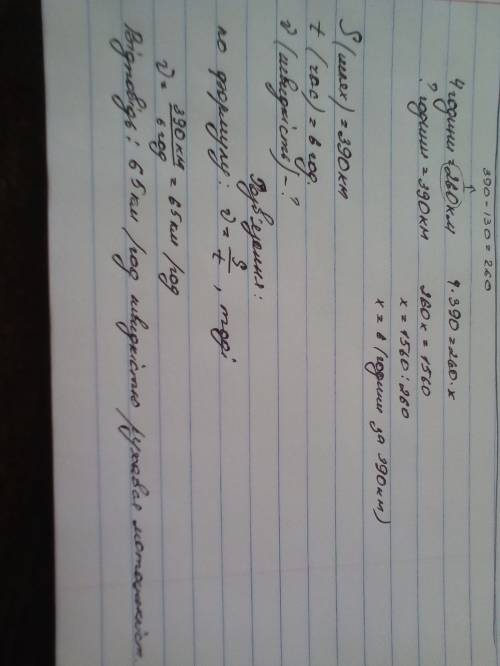 390-130=260
4 години = 260км
? години = 390км
4·390=260·x
260x=1560
x=1560:260
x=6 (години за 390км)
S (шлях) = 390км
t (час) = 6 год.
v (швидкість) - ?
Розв'язання:
по формулі: v = S/t, тоді
v = 390км/6 год = 65км/год
Відповідь: 65км/год швидкістю рухався мотоцикліст.